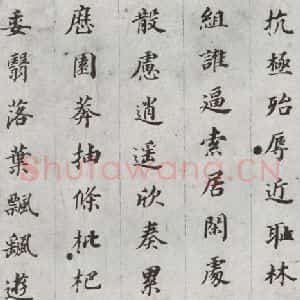 抗極殆辱近恥林
組誰逼索居閑處
散慮逍遥欣奏累
歷園莽抽條枇杷
委翳落葉飄飖遊
Shufawang.CN